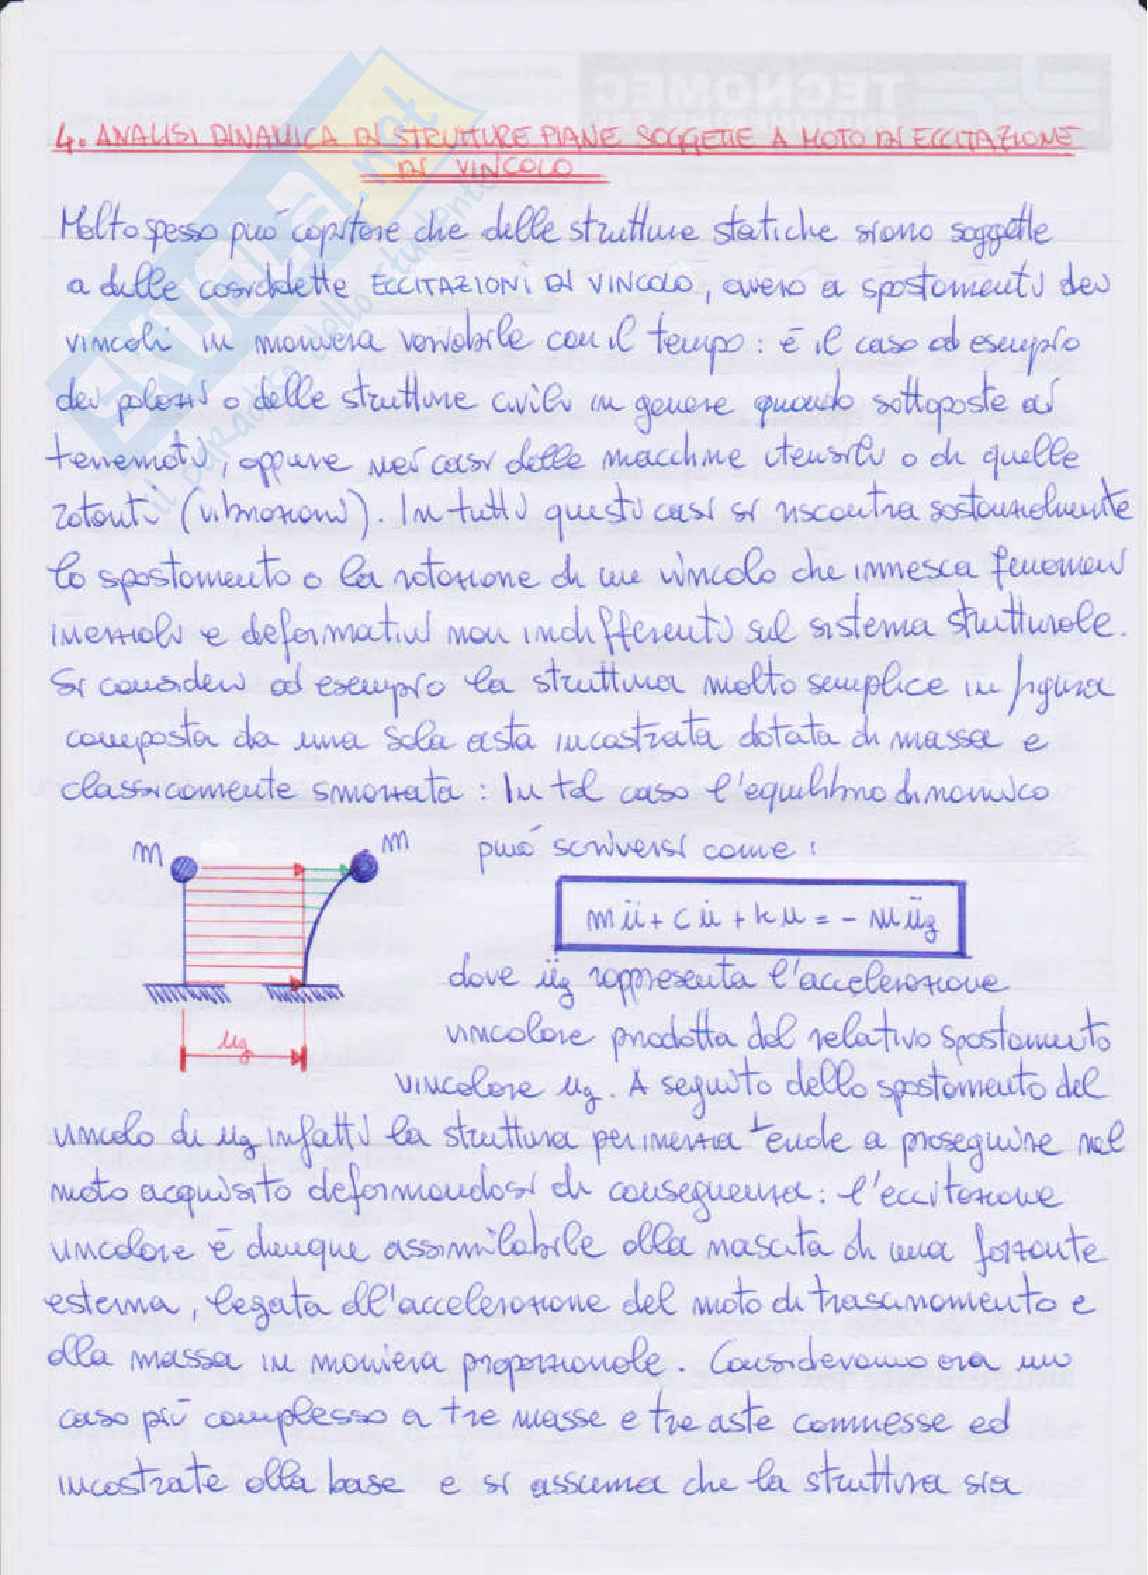 TECNOMEC
SKUOLA.net
il paradiso dello studente
4. ANALISI DINAMICA DI STRUTTURE PIANE SOGGETTE A MOTO DI ECCITAZIONE
DI VINCOLO
Molto spesso può capitare che delle strutture statiche siano soggette
a delle cosiddette ECCITAZIONI DI VINCOLO, ovvero a spostamenti dei
vincoli in maniera variabile con il tempo: è il caso ad esempio
dei palazzi o delle strutture civili in genere quando sottoposte ai
terremoti, oppure nei casi delle macchine utensili o di quelle
rotanti (vibrazioni). In tutti questi casi si riscontra sostanzialmente
lo spostamento o la rotazione di un vincolo che innesca fenomeni
inerziali e deformativi non indifferenti sul sistema strutturale.
Si consideri ad esempio la struttura molto semplice in figura
composta da una sola asta incastrata dotata di massa e
classicamente smorzata: In tal caso l'equilibrio dinamico
m
m
può scriversi come:
mü + cu̇ + ku = - müg
ug
dove üg rappresenta l'accelerazione
vincolare prodotta dal relativo spostamento
vincolare ug. A seguito dello spostamento del
vincolo di ug infatti la struttura per inerzia tende a proseguire nel
moto acquisito deformandosi di conseguenza: l'eccitazione
vincolare è dunque assimilabile alla nascita di una forzante
esterna, legata all'accelerazione del moto di trascinamento e
alla massa in maniera proporzionale. Consideriamo ora un
caso più complesso a tre masse e tre aste connesse ed
incastrate alla base e si assuma che la struttura sia